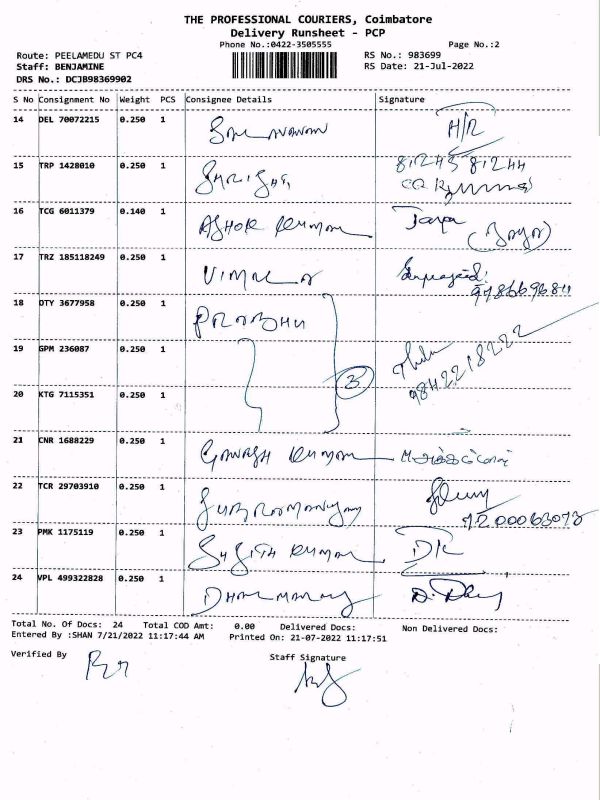 THE PROFESSIONAL COURIERS, Coimbatore
Delivery Runsheet - PCP
Phone No.:0422-3505555 Page No.:2
Route: PEELAMEDU ST PC4 RS No.: 983699
Staff: BENJAMINE RS Date: 21-Jul-2022
DRS No.: DCJB98369902
S No Consignment No Weight PCS Consignee Details Signature
14 DEL 70072215 0.250 1 SARAVANAN H/R
15 TRP 1428010 0.250 1 81243 81244
16 TCG 6011379 0.140 1 ASHOK KUMAR Jaya (Jaya)
17 TRZ 185118249 0.250 1 VIMALA
18 DTY 3677958 0.250 1 PRABHU
19 GPM 236087 0.250 1 9842218222
20 KTG 7115351 0.250 1 3
21 CNR 1688229 0.250 1 GANESH KUMAR
22 TCR 29703910 0.250 1 SUBRAMANIAM 7200063073
23 PMK 1175119 0.250 1 SUJITH KUMAR
24 VPL 499322828 0.250 1 DHARMARAJ
Total No. Of Docs: 24 Total COD Amt: 0.00 Delivered Docs: Non Delivered Docs:
Entered By :SHAN 7/21/2022 11:17:44 AM Printed On: 21-07-2022 11:17:51
Verified By Staff Signature